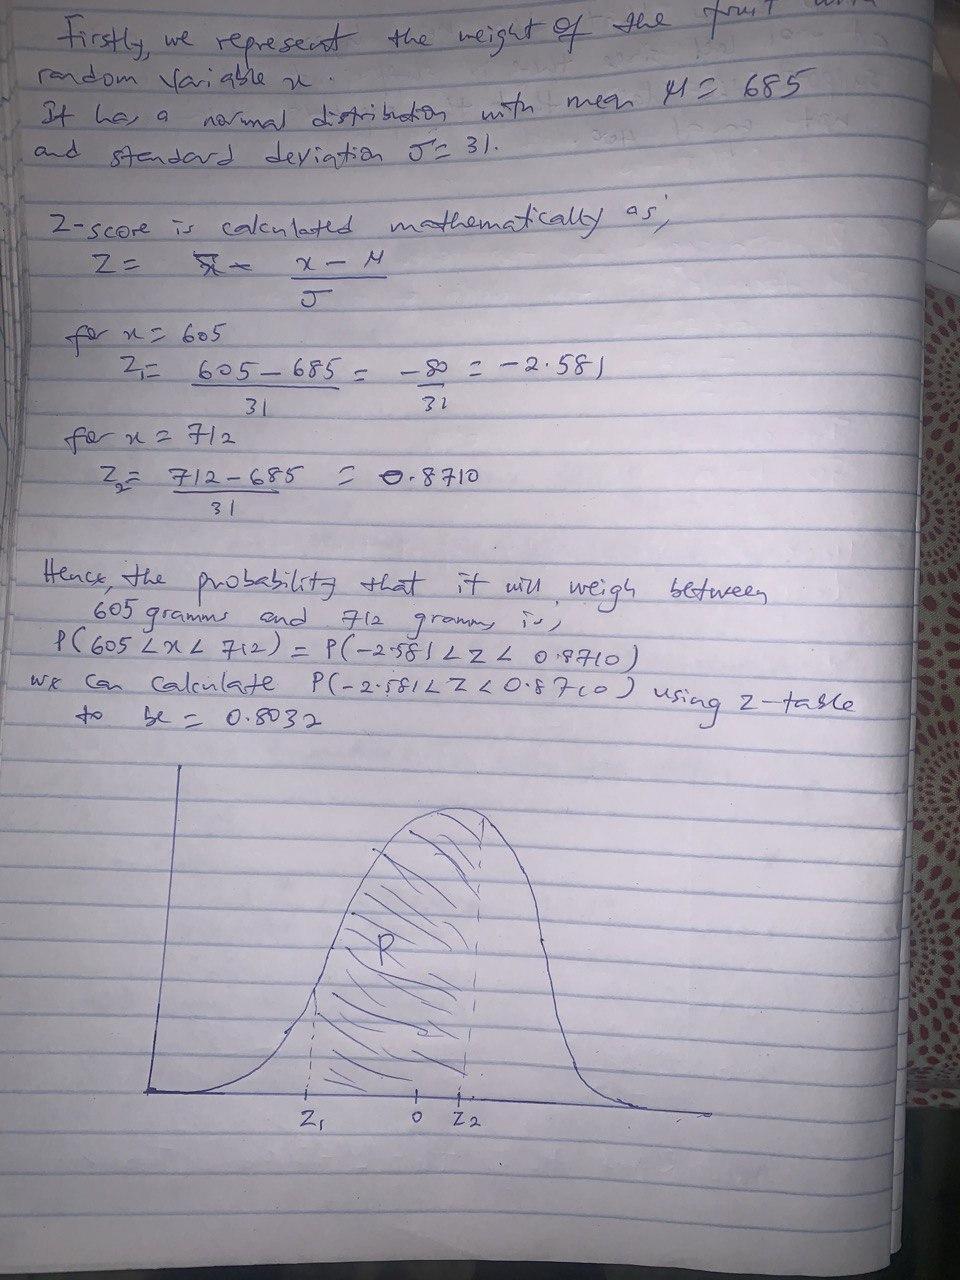 Firstly, we represent the weight of the fruit with
random variable x.
It has a normal distribution with mean μ = 685
and standard deviation σ = 31.
Z-score is calculated mathematically as,
Z = x - μ
σ
for x = 605
Z₁ = 605 - 685 = -80 = -2.581
31 31
for x = 712
Z₂ = 712 - 685 = 0.8710
31
Hence, the probability that it will weigh between
605 gramms and 712 gramms is,
P(605 < x < 712) = P(-2.581 < Z < 0.8710)
we can calculate P(-2.581 < Z < 0.8710) using z-table
to be = 0.8032
R
Z₁ 0 Z₂